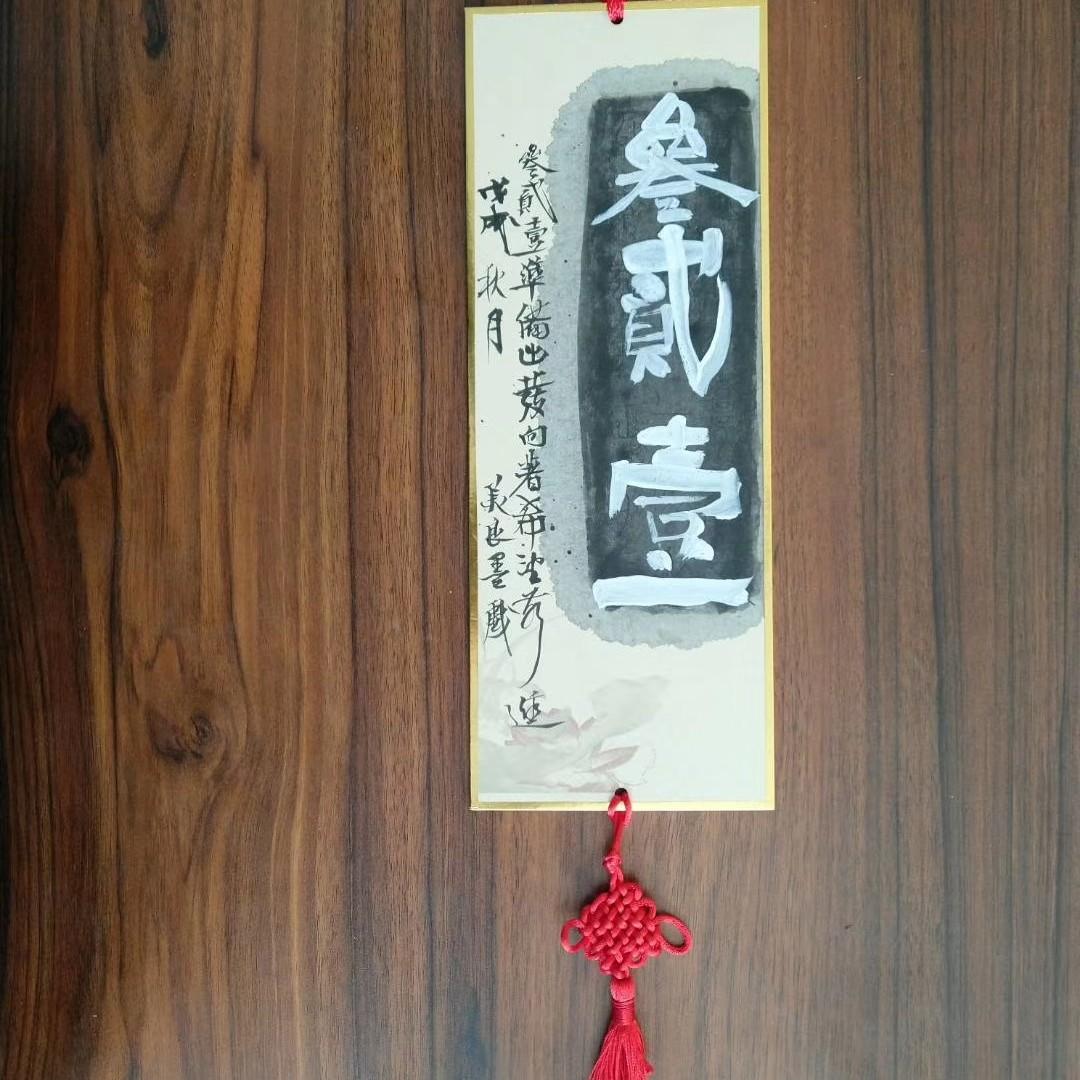 叄貳壹
叄貳壹準備出發向著希望前進
戊戌秋月 美良墨戲